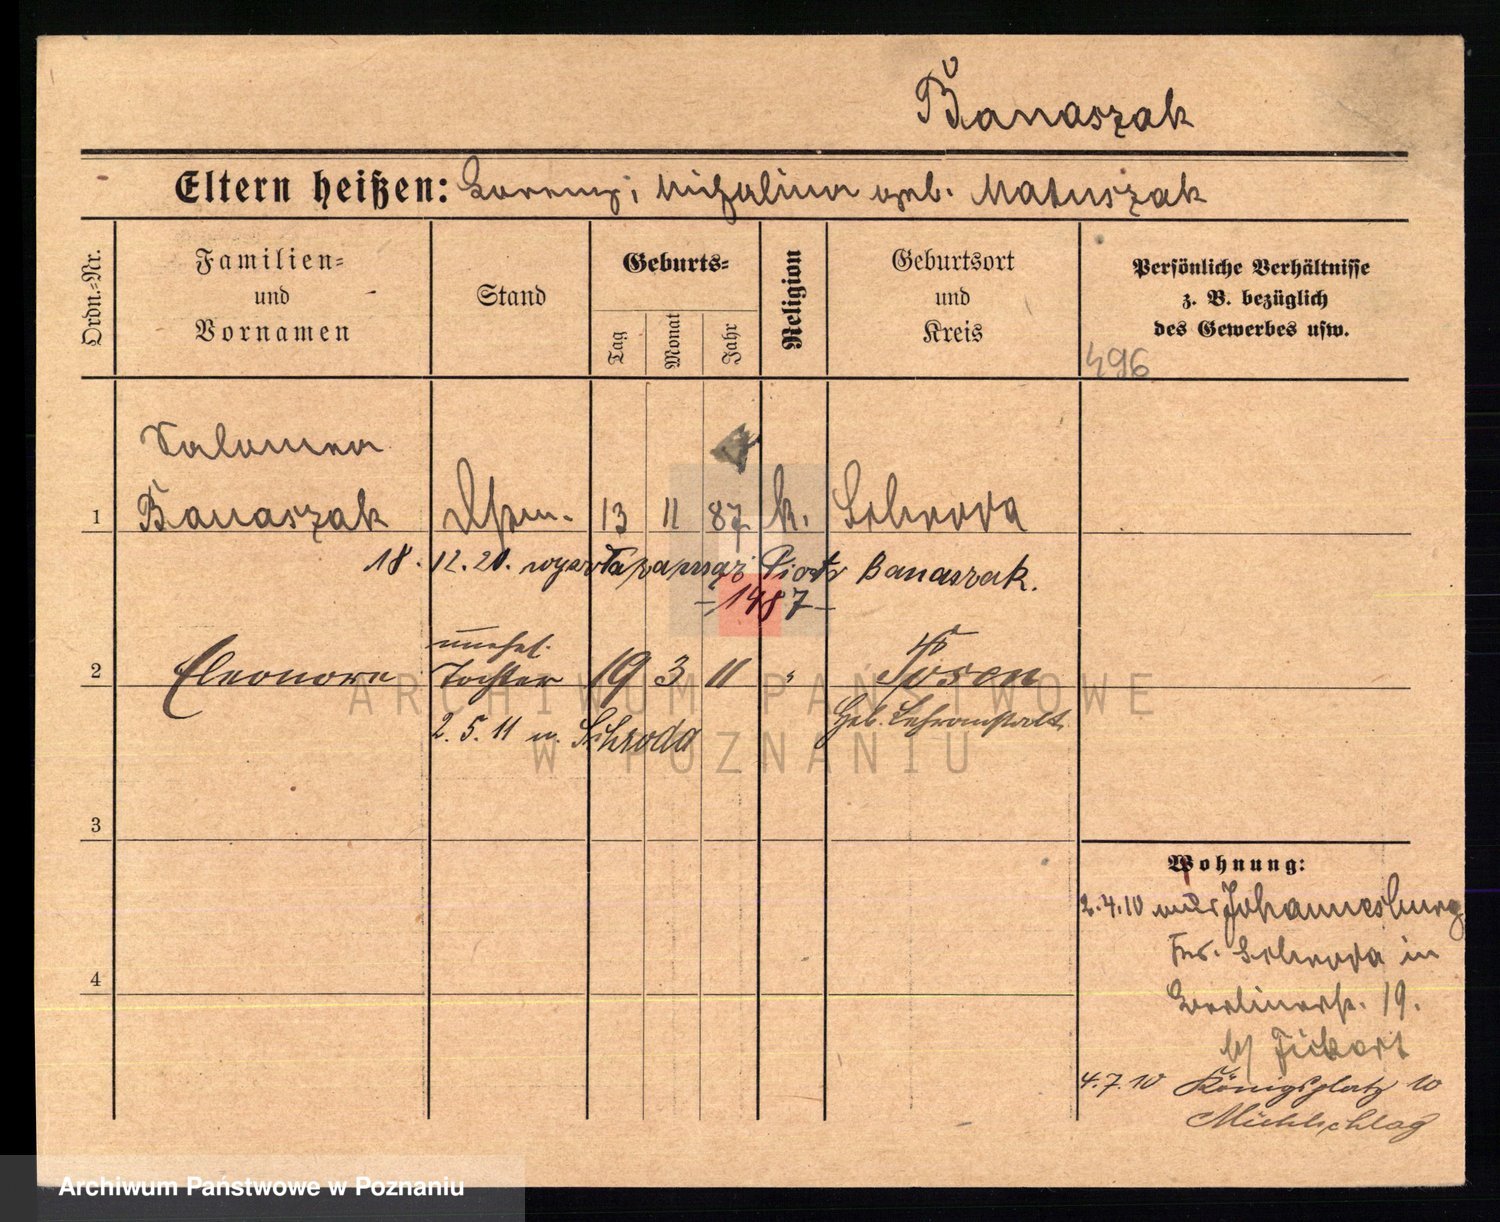 Banaszak
Eltern heißen: Lorenz, Michalina geb. Matuszak
Ordn.-Nr.
Familien-
und
Vornamen
Stand
Geburts-
Tag
Monat
Jahr
Religion
Geburtsort
und
Kreis
Persönliche Verhältnisse
z. B. bezüglich
des Gewerbes usw.
496
Salomea
1 Banaszak 13 11 87 k. Schroda
18. 12. 20. Piotr Banaszak.
1487
unehel.
2 Eleonore Tochter 19 3 11 " Posen
2. 5. 11 n. Schroda Heb. Lehranstalt
3
4
Wohnung:
2.4.10 aus Johannesburg
Krs. Schroda in
Berlinerstr. 19.
b/ Fickert
4.7.10 Königsplatz 10
Mühlschlag
ARCHIWUM PAŃSTWOWE
W POZNANIU
Archiwum Państwowe w Poznaniu